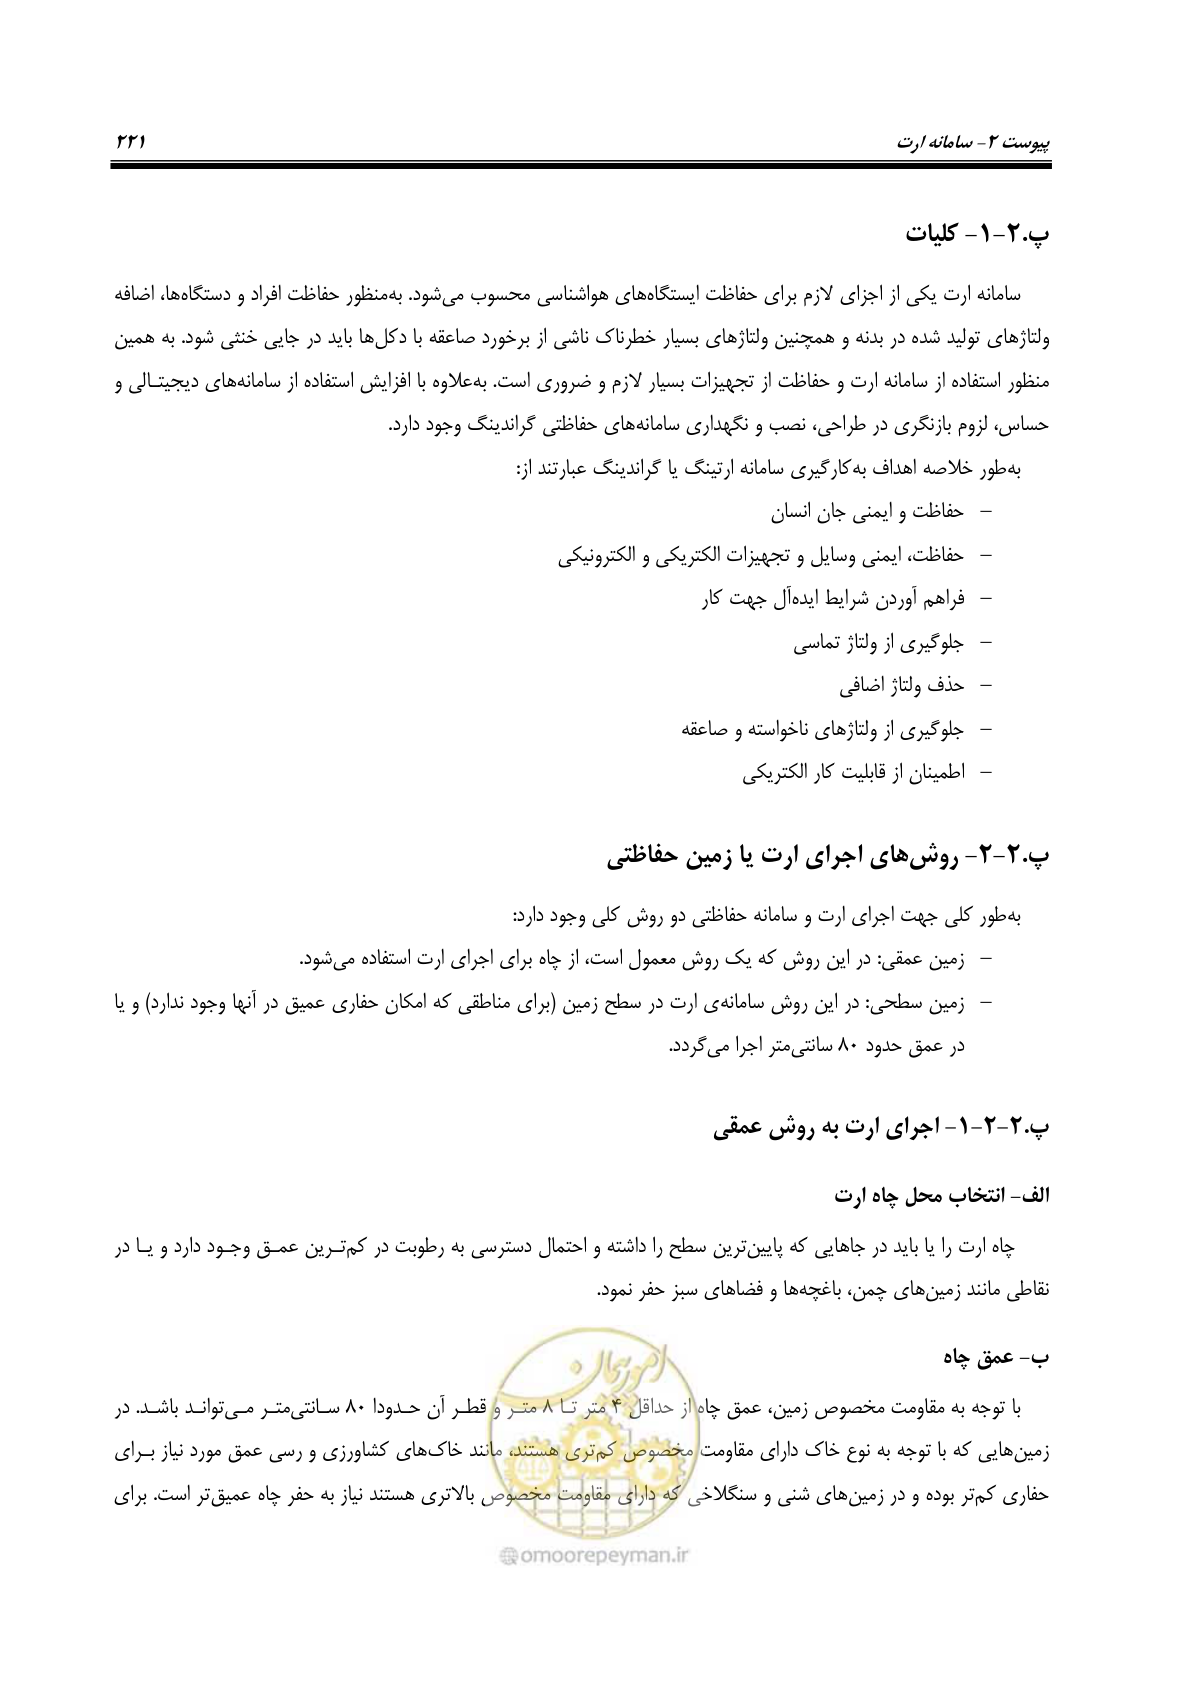 پیوست ۲- سامانه ارت ۲۲۱
پ.۲-۱- کلیات
سامانه ارت یکی از اجزای لازم برای حفاظت ایستگاه‌های هواشناسی محسوب می‌شود. به‌منظور حفاظت افراد و دستگاه‌ها، اضافه
ولتاژهای تولید شده در بدنه و همچنین ولتاژهای بسیار خطرناک ناشی از برخورد صاعقه با دکل‌ها باید در جایی خنثی شود. به همین
منظور استفاده از سامانه ارت و حفاظت از تجهیزات بسیار لازم و ضروری است. به‌علاوه با افزایش استفاده از سامانه‌های دیجیتـالی و
حساس، لزوم بازنگری در طراحی، نصب و نگهداری سامانه‌های حفاظتی گراندینگ وجود دارد.
به‌طور خلاصه اهداف به‌کارگیری سامانه ارتینگ یا گراندینگ عبارتند از:
– حفاظت و ایمنی جان انسان
– حفاظت، ایمنی وسایل و تجهیزات الکتریکی و الکترونیکی
– فراهم آوردن شرایط ایده‌آل جهت کار
– جلوگیری از ولتاژ تماسی
– حذف ولتاژ اضافی
– جلوگیری از ولتاژهای ناخواسته و صاعقه
– اطمینان از قابلیت کار الکتریکی
پ.۲-۲- روش‌های اجرای ارت یا زمین حفاظتی
به‌طور کلی جهت اجرای ارت و سامانه حفاظتی دو روش کلی وجود دارد:
– زمین عمقی: در این روش که یک روش معمول است، از چاه برای اجرای ارت استفاده می‌شود.
– زمین سطحی: در این روش سامانه‌ی ارت در سطح زمین (برای مناطقی که امکان حفاری عمیق در آنها وجود ندارد) و یا
در عمق حدود ۸۰ سانتی‌متر اجرا می‌گردد.
پ.۲-۲-۱- اجرای ارت به روش عمقی
الف- انتخاب محل چاه ارت
چاه ارت را یا باید در جاهایی که پایین‌ترین سطح را داشته و احتمال دسترسی به رطوبت در کم‌تـرین عمـق وجـود دارد و یـا در
نقاطی مانند زمین‌های چمن، باغچه‌ها و فضاهای سبز حفر نمود.
ب- عمق چاه
با توجه به مقاومت مخصوص زمین، عمق چاه از حداقل ۴ متر تـا ۸ متـر و قطـر آن حـدودا ۸۰ سـانتی‌متـر مـی‌توانـد باشـد. در
زمین‌هایی که با توجه به نوع خاک دارای مقاومت مخصوص کم‌تری هستند، مانند خاک‌های کشاورزی و رسی عمق مورد نیاز بـرای
حفاری کم‌تر بوده و در زمین‌های شنی و سنگلاخی که دارای مقاومت مخصوص بالاتری هستند نیاز به حفر چاه عمیق‌تر است. برای
امور پیمان
@omoorepeyman.ir